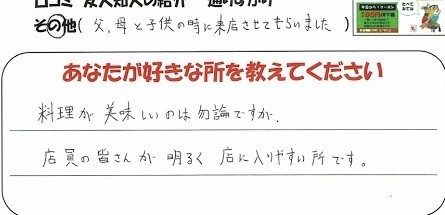 口コミ 友人知人の紹介 通りすがり
その他( 父、母と子供の時に来店させてもらいました )
あなたが好きな所を教えてください
料理が美味しいのは勿論ですが、
店員の皆さんが明るく店に入りやすい所です。